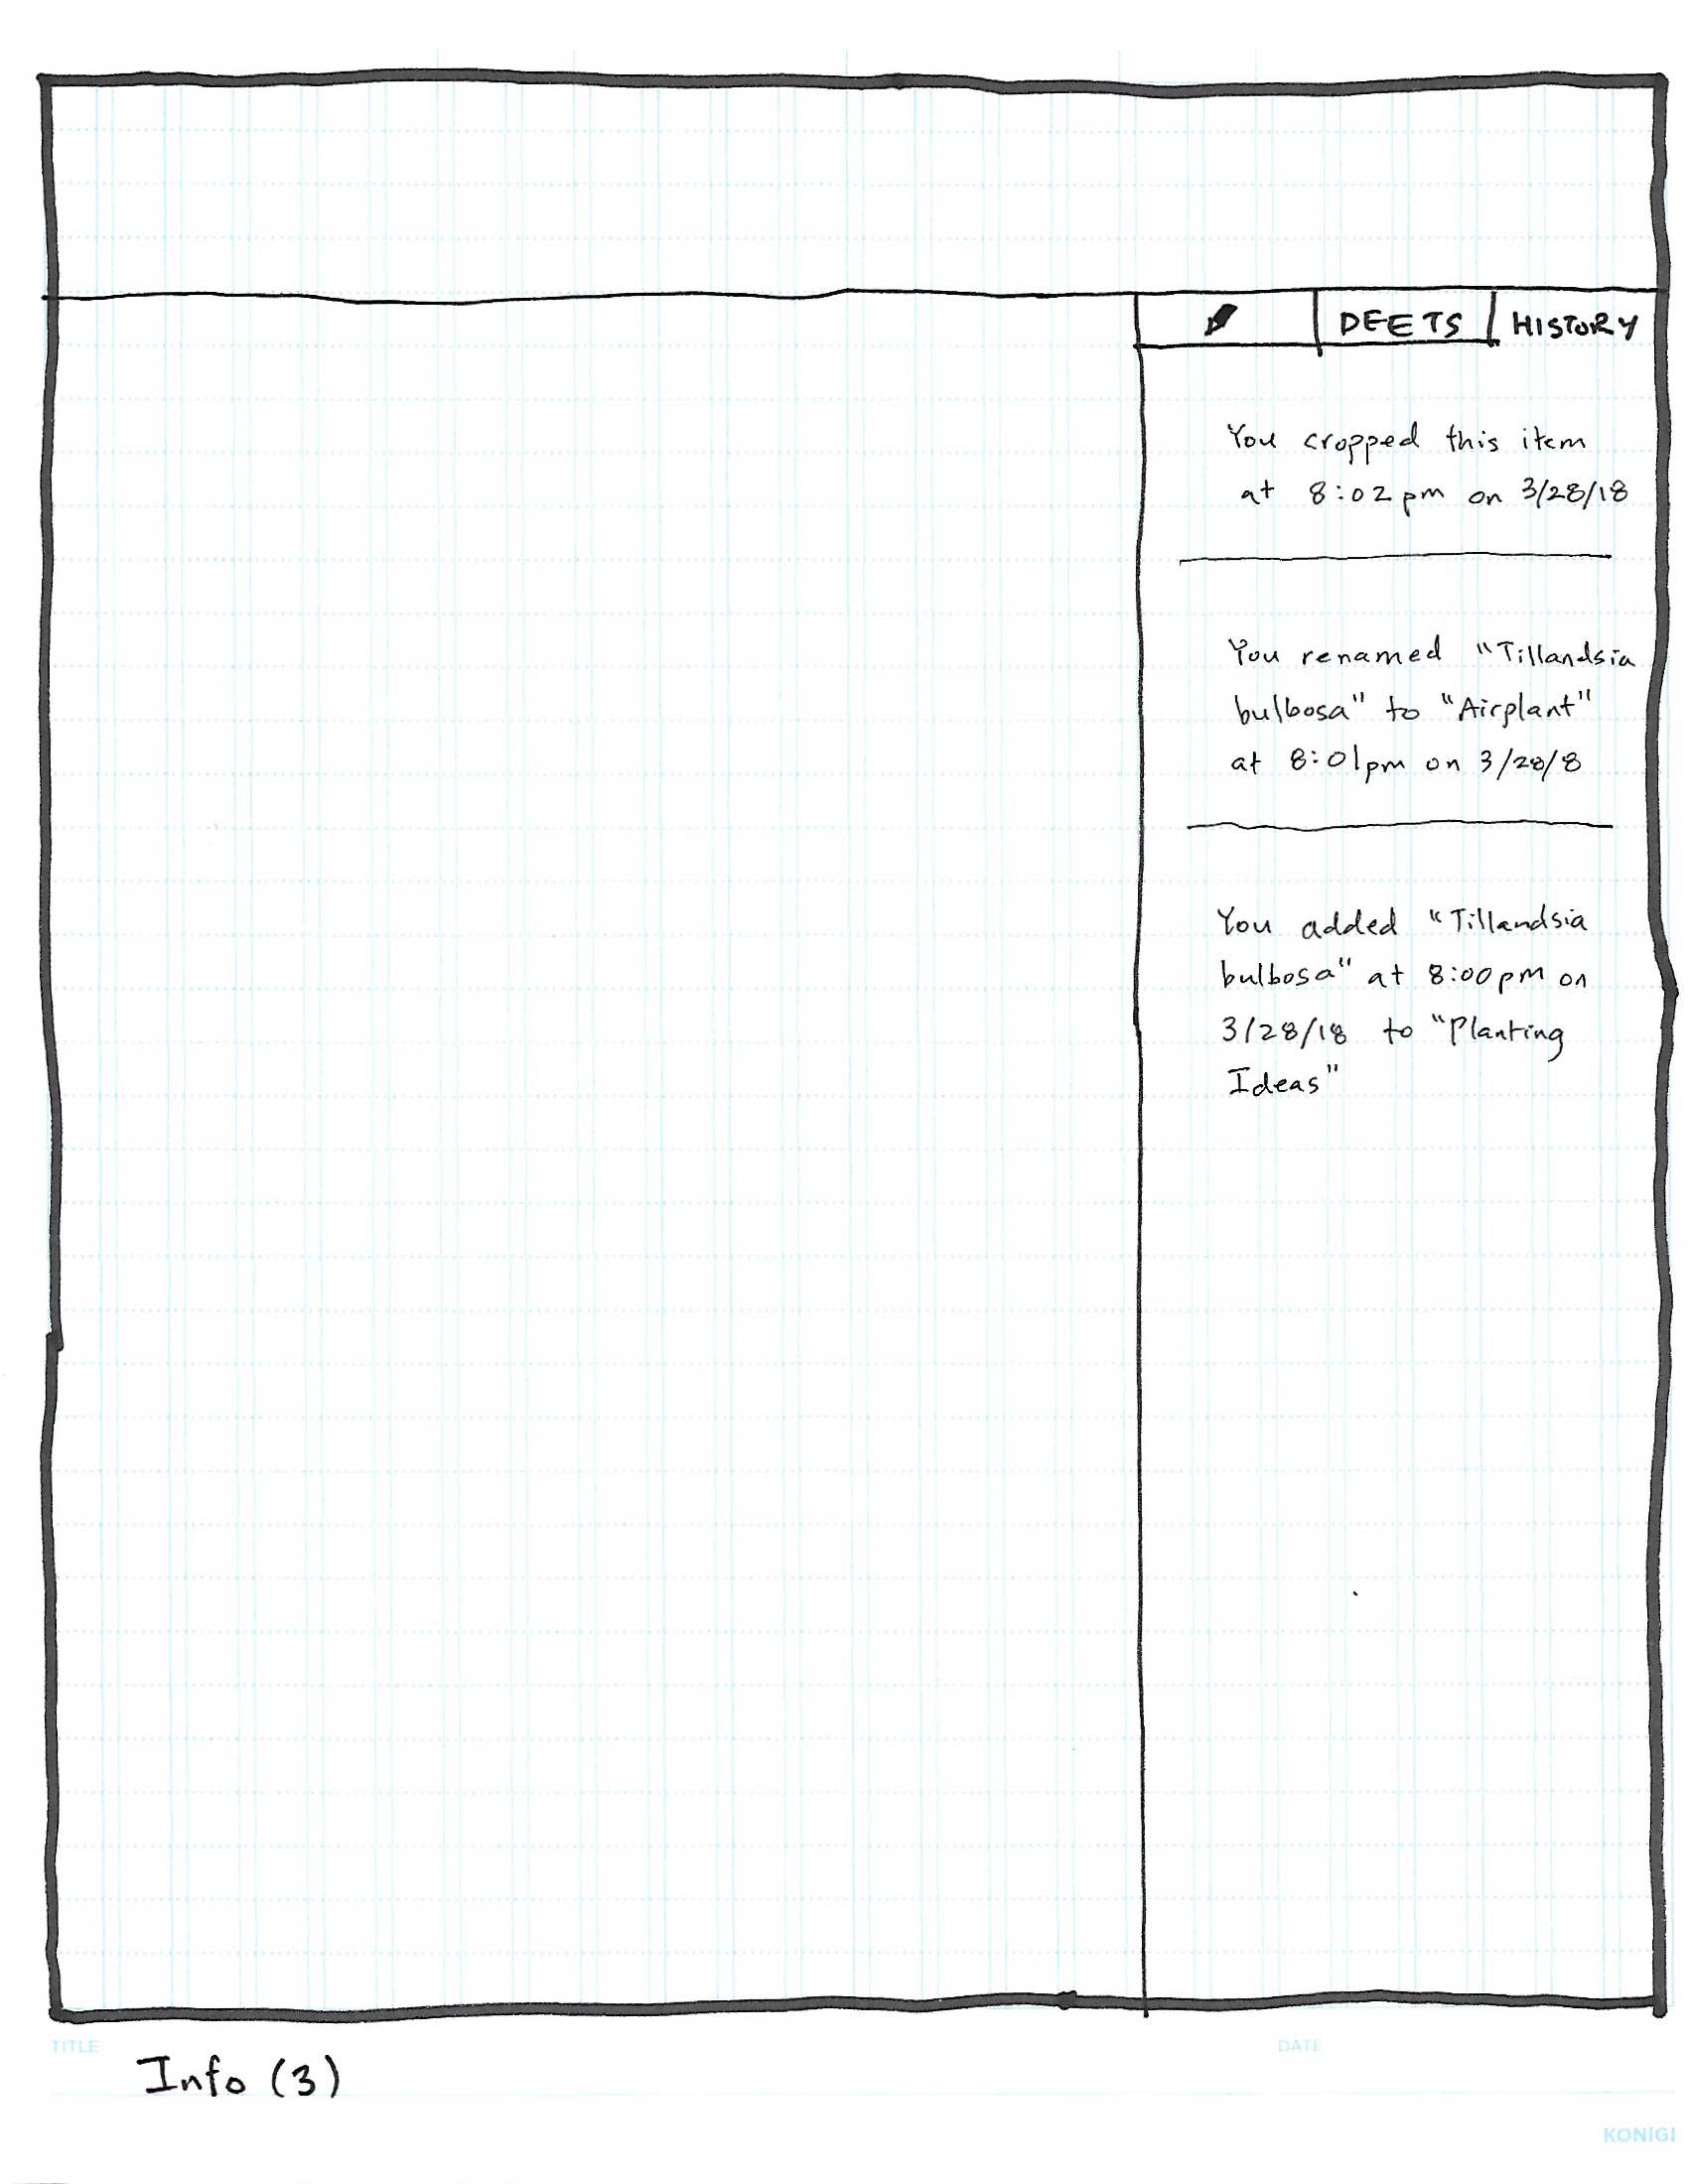 DEETS HISTORY
You cropped this item
at 8:02pm on 3/28/18
You renamed "Tillandsia
bulbosa" to "Airplant"
at 8:01pm on 3/28/8
You added "Tillandsia
bulbosa" at 8:00pm on
3/28/18 to "Planting
Ideas"
TITLE DATE
Info (3)
KONIGI